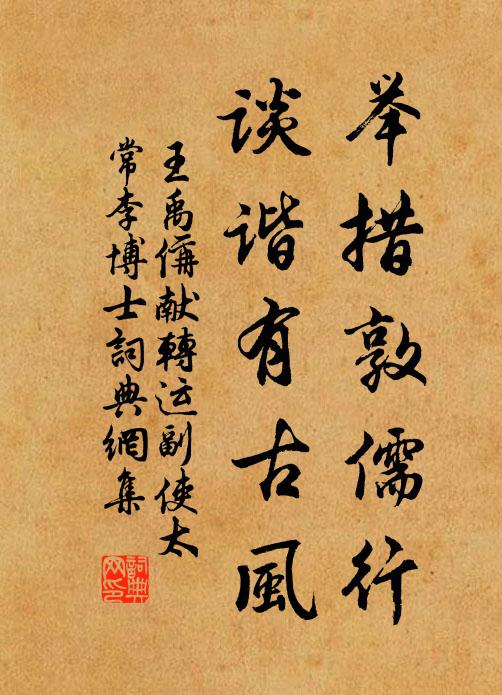 举措敦儒行
谈谐有古风
王禹偁献轉运副使太
常李博士詞典網集
詞典网印